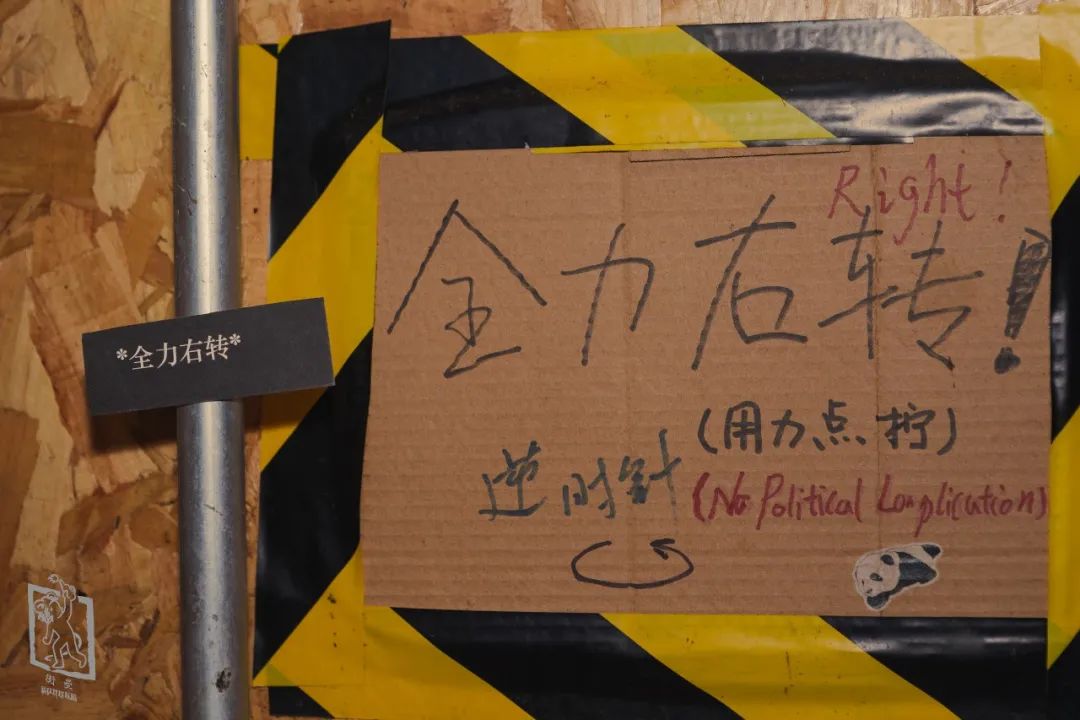 *全力右转*
Right!
全力右转!
(用力点拧)
逆时针
(No Political Complication)
街景